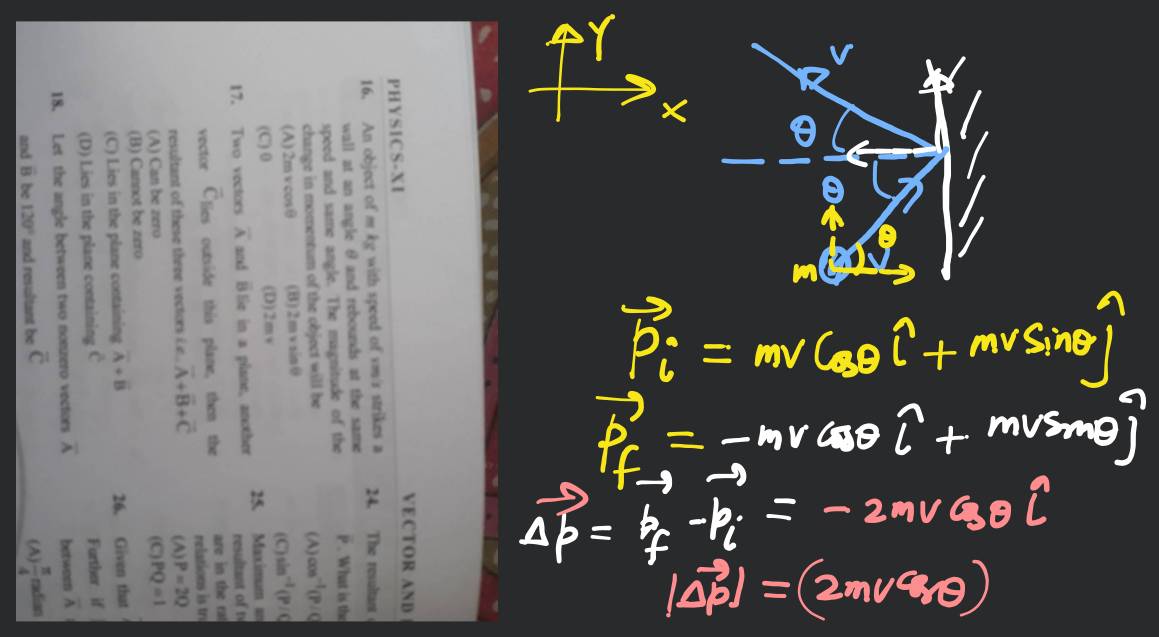 PHYSICS-XI
16. An object of m kg with speed of v m/s strikes a
wall at an angle θ and rebounds at the same
speed and same angle. The magnitude of the
change in momentum of the object will be
(A) 2mv cosθ (B) 2mv sinθ
(C) 0 (D) 2mv
17. Two vectors A⃗ and B⃗ lie in a plane, another
vector C⃗ lies outside this plane, then the
resultant of these three vectors i.e. A⃗+B⃗+C⃗
(A) Can be zero
(B) Cannot be zero
(C) Lies in the plane containing A⃗+B⃗
(D) Lies in the plane containing C⃗
18. Let the angle between two nonzero vectors A⃗
and B⃗ be 120° and resultant be C⃗
VECTOR AND
24. The resultant
P⃗. What is the
(A) cos⁻¹(P/Q
(C) sin⁻¹(P/Q
25. Maximum
resultant of
are in the
relations is
(A) P = 2Q
(C) PQ = 1
26. Given that
Further if
between A⃗
(A) π/4 radian
Y
x
v
θ
θ
θ
m
v
p⃗i = mv cosθ î + mv sinθ ĵ
p⃗f = -mv cosθ î + mv sinθ ĵ
Δp⃗ = p⃗f - p⃗i = -2mv cosθ î
|Δp⃗| = (2mv cosθ)